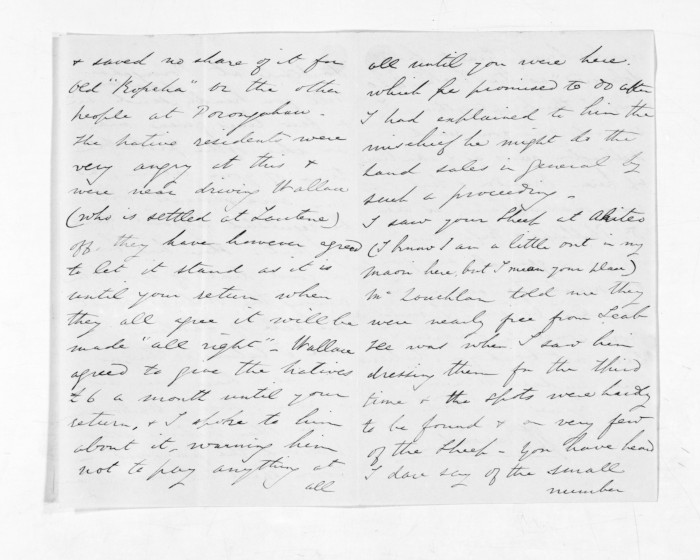 & saved no share of it for
old "Kopeha" or the other
people at Porongahau -
The native residents were
very angry at this &
were near driving Wallace
(who is settled at Tautane)
off. they have however agreed
to let it stand as it is
until your return when
they all agree it will be
made "all right" - Wallace
agreed to give the natives
£6 a month until your
return, & I spoke to him
about it, warning him
not to pay anything at
all
all until you were here.
which he promised to do after
I had explained to him the
mischief he might do the
land sales in general by
such a proceeding -
I saw your Sheep at Akiteo
(I know I am a little out in my
maori here, but I mean your place)
Mc Louchlan told me they
were nearly free from Scab
He was when I saw him
dressing them for the third
time & the spots were hardly
to be found & on very few
of the Sheep - You have heard
I dare say of the small
number